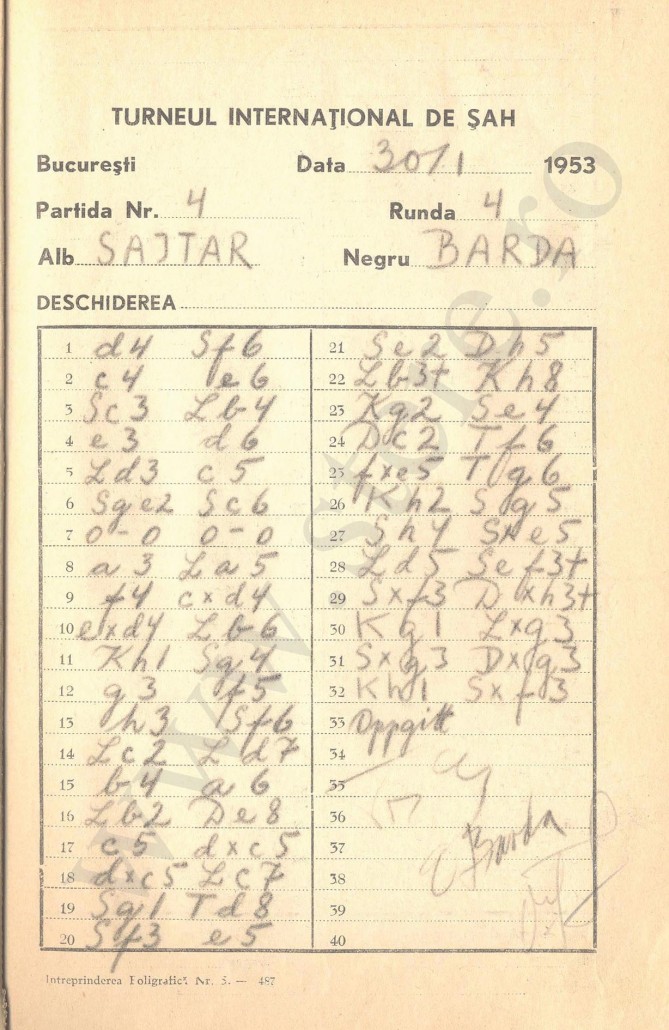 TURNEUL INTERNAȚIONAL DE ȘAH
București Data 30/1 1953
Partida Nr. 4 Runda 4
Alb SAJTAR Negru BARDA
DESCHIDEREA
1 d4 Sf6
2 c4 e6
3 Sc3 Lb4
4 e3 d6
5 Ld3 c5
6 Sge2 Sc6
7 0-0 0-0
8 a3 La5
9 f4 cxd4
10 exd4 Lb6
11 Kh1 Sg4
12 g3 f5
13 h3 Sf6
14 Lc2 Ld7
15 b4 a6
16 Lb2 De8
17 c5 dxc5
18 dxc5 Lc7
19 Sg1 Td8
20 Sf3 e5
21 Se2 Dh5
22 Lb3+ Kh8
23 Kg2 Se4
24 Dc2 Tf6
25 fxe5 Tg6
26 Kh2 Sg5
27 Sh4 Sxe5
28 Ld5 Sef3+
29 Sxf3 Dxh3+
30 Kg1 Lxg3
31 Sxg3 Dxg3
32 Kh1 Sxf3
33 Oppgitt
34
35
36
37
38
39
40
Barda
Intreprinderea Poligrafică Nr. 5. — 487
www.store.ro